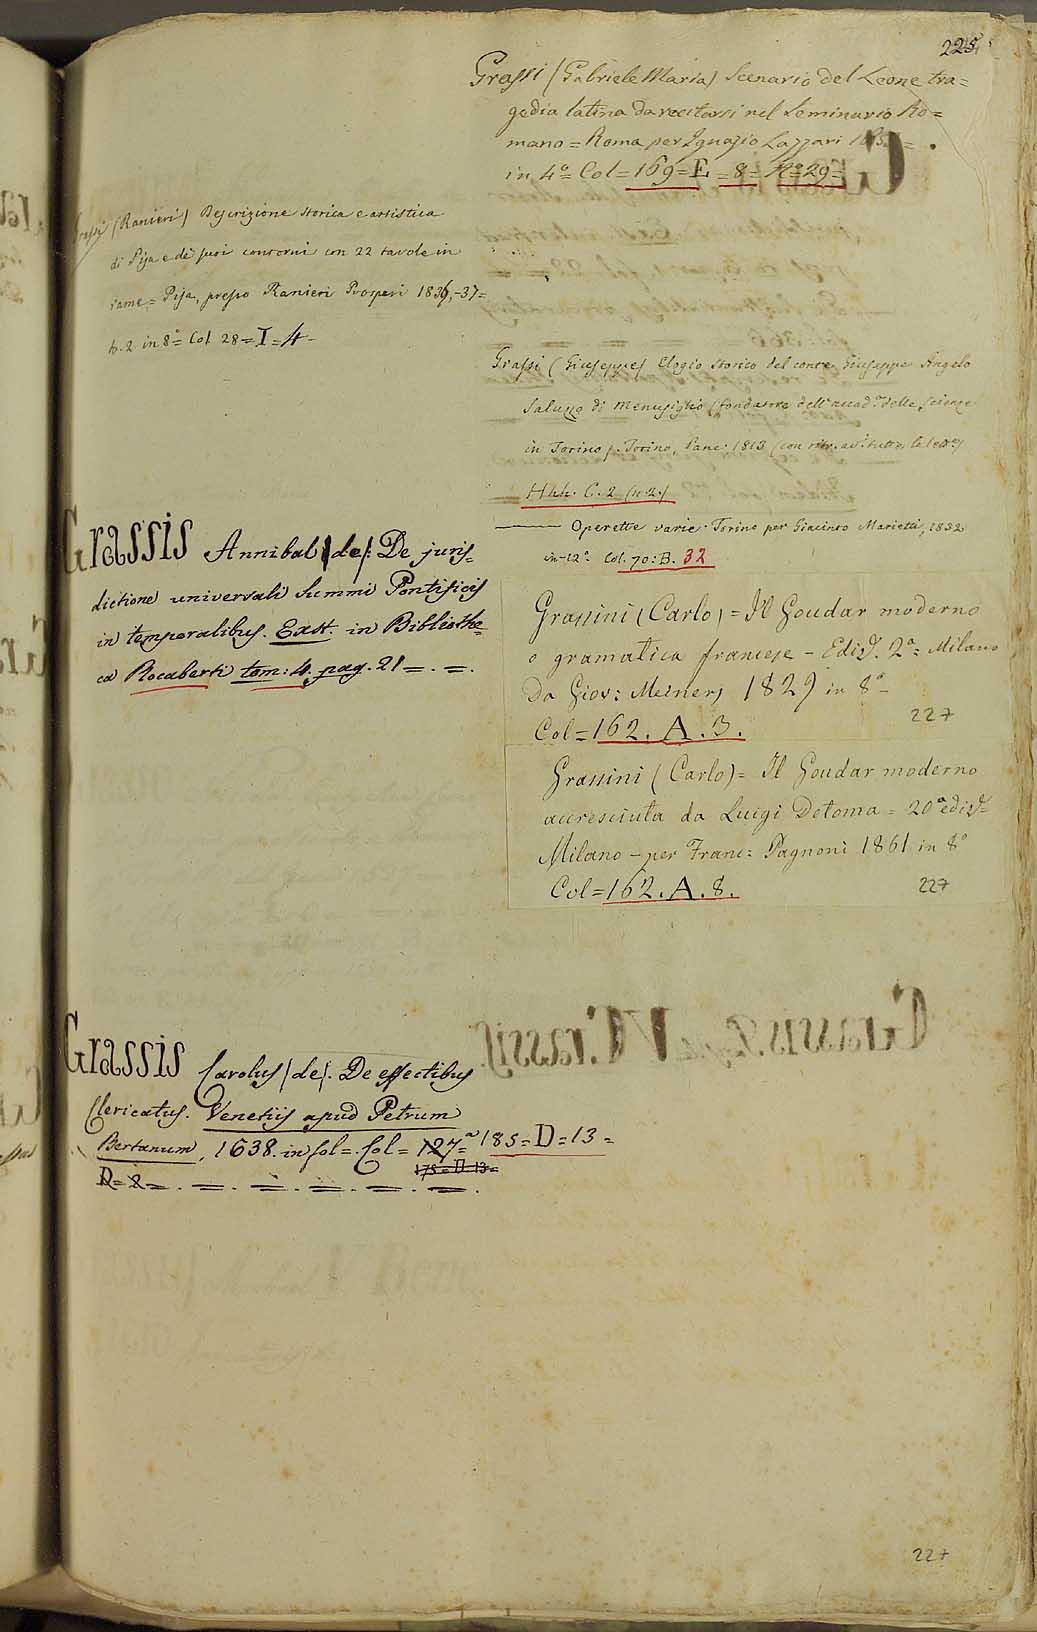 225
Grassi (Gabriele Maria) Scenario del Leone tra=
gedia latina da recitarsi nel Seminario Ro=
mano = Roma per Ignazio Lazzari
in 4º = Col = 169 = E = 8 = Nº 29 =
Grassi (Ranieri) Descrizione storica e artistica
di Pisa e de' suoi contorni con 22 tavole in
rame = Pisa, presso Ranieri Prosperi 1836,-37=
t. 2 in 8º = Col 28 = I = 4 -
Grassi (Giuseppe) Elogio storico del conte Giuseppe Angelo
Saluzzo di Menusiglio (fondatore dell'accad. delle Scienze
in Torino). Torino, Pane. 1813 (con ritr.
Hhh. C. 2 (n. 2.)
——— Operette varie. Torino per Giacinto Marietti, 1832
in-12º Col. 70: B. 32
Grassis Annibal /de/: De juris=
dictione universali Summi Pontificis
in temporalibus. Exst. in Bibliothe=
ca Rocaberti tom: 4. pag. 21 = . = .
Grassini (Carlo) = Il Goudar moderno
o gramatica francese - Ediz. 2ª = Milano
Da Giov: Meiners 1829 in 8º -
Col = 162. A. 3.
227
Grassini (Carlo) = Il Goudar moderno
accresciuta da Luigi Detoma = 20ª ediz. =
Milano - per Franc: Pagnoni 1861 in 8º
Col = 162. A. 8.
227
Grassis Carolus /de/. De effectibus
Clericatus. Venetiis apud Petrum
Bertanum, 1638. in fol = . Col = 127 = 185 = D = 13 =
175 = D 13 =
D = 2 = . = . = . = . = . = .
227